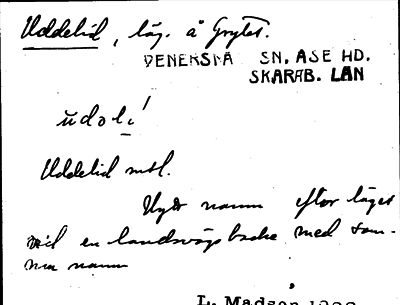 Uddelid, läg. å Grytet.
VENERSNÄ SN. ÅSE HD.
SKARAB. LÄN
Uddelid mtl.
Nytt namn efter läget
vid en landsvägsbacke med sam-
ma namn
L. Madsen